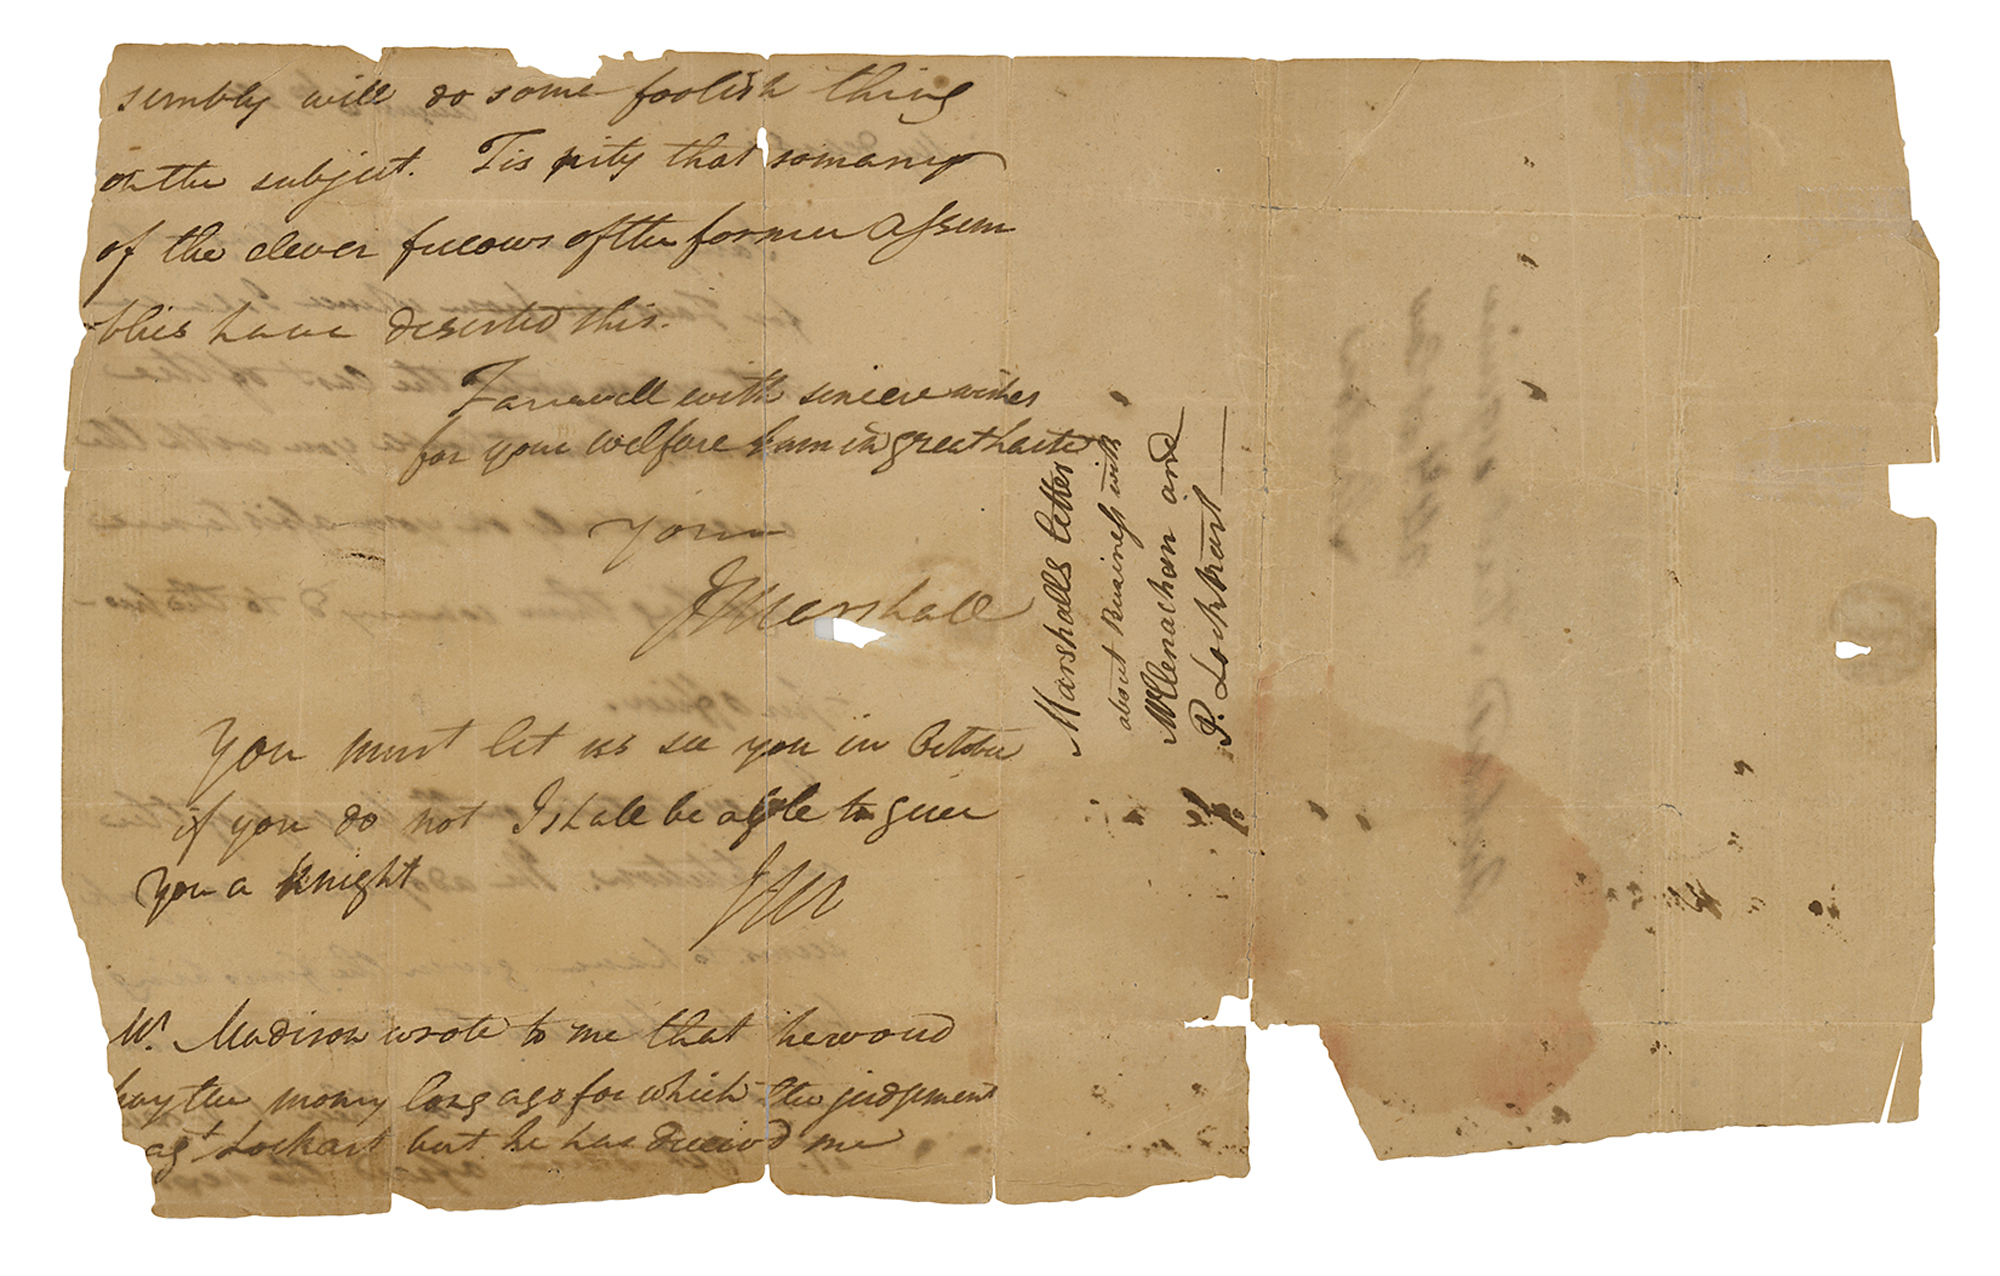 sembly will do some foolish thing
on the subject. Tis pity that so many
of the clever fellows of the former assem
blies have deserted this.
Farewell with sincere wishes
for your welfare I am in great haste
Your
J Marshall
You must let us see you in October
if you do not I shall be able to give
you a Knight
JM
Mr. Madison wrote to me that he woud
pay the money long ago for which the judgement
agt Lockart but he has deceivd me
Marshalls Letter
about Business with
McClenachan and
P. Lockhart